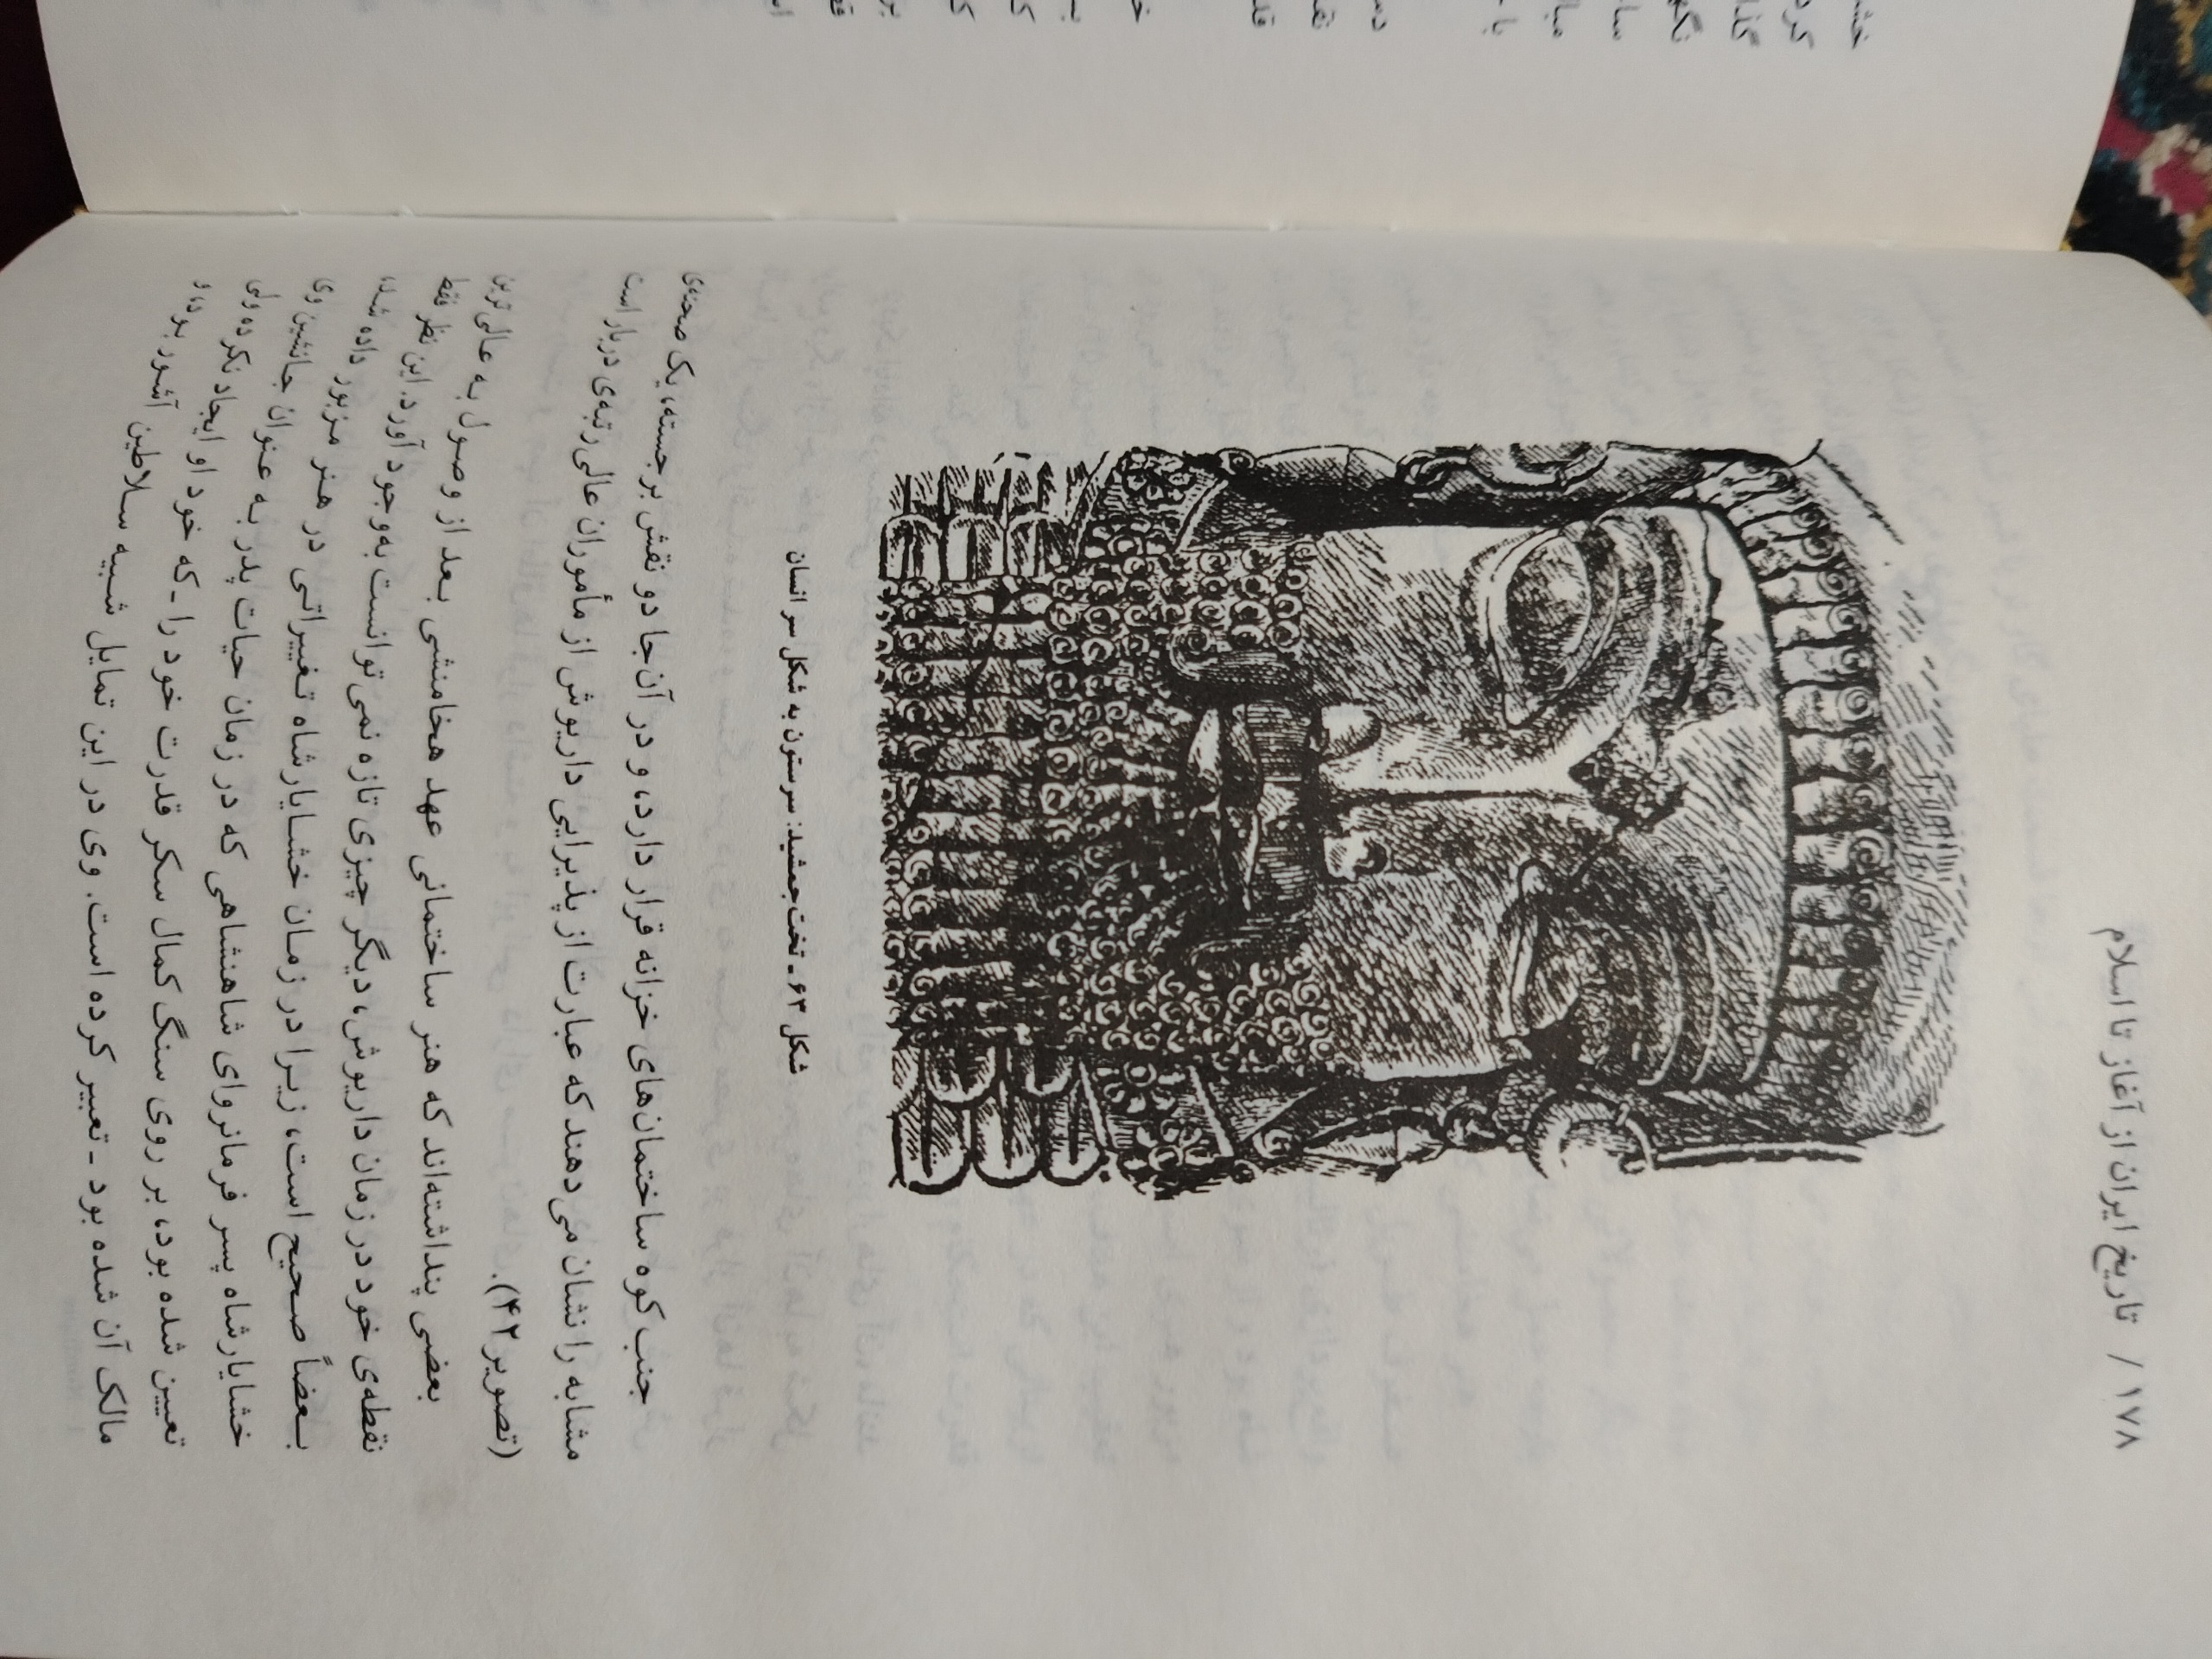 ۱۷۸ / تاریخ ایران از آغاز تا اسلام
شکل ۶۳ ـ تخت‌جمشید: سرستون به شکل سر انسان
جنب کوه ساختمان‌های خزانه قرار دارد، و در آن‌جا دو نقش برجسته، یک صحنه‌ی
مشابه را نشان می‌دهند که عبارت از پذیرایی داریوش از مأموران عالی‌رتبه‌ی دربار است
(تصویر ۴۲).
بعضی پنداشته‌اند که هنر ساختمانی عهد هخامنشی بعد از وصول به عالی‌ترین
نقطه‌ی خود در زمان داریوش، دیگر چیزی تازه نمی‌توانست به‌وجود آورد. این نظر فقط
بعضاً صحیح است، زیرا در زمان خشایارشاه تغییراتی در هنر مزبور داده شد.
خشایارشاه پسر فرمانروای شاهنشاهی که در زمان حیات پدر به عنوان جانشین وی
تعیین شده بود، بر روی سنگ کمال سکر قدرت خود را ـ که خود او ایجاد نکرده ولی
مالک آن شده بود ـ تعبیر کرده است. وی در این تمایل شبیه سلاطین آشور بود، و